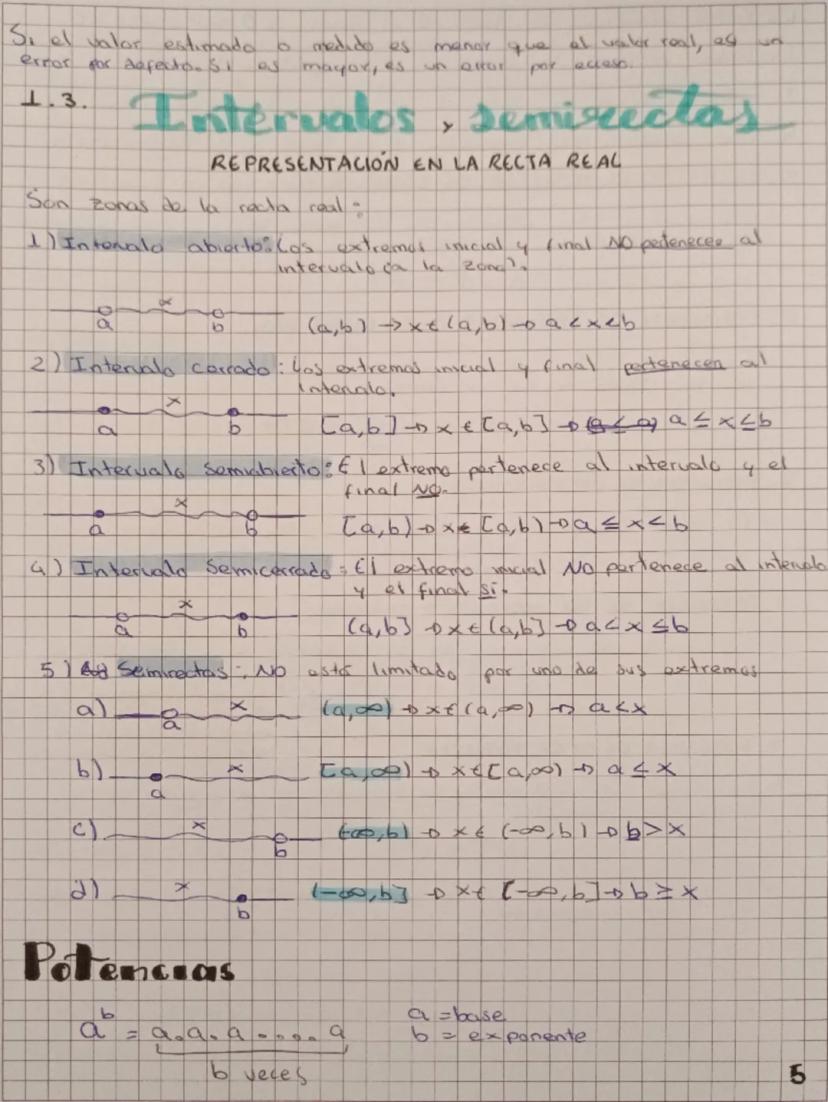 Si el valor estimado o medido es menor que el valor real, es un
error por defecto. Si es mayor, es un error por exceso.
1.3. Intervalos y semirrectas
REPRESENTACIÓN EN LA RECTA REAL
Son zonas de la recta real:
1) Intervalo abierto: Los extremos inicial y final NO pertenecen al
intervalo (a la zona).
x
a b (a,b) → x ∈ (a,b) → a < x < b
2) Intervalo cerrado: Los extremos inicial y final pertenecen al
intervalo.
x
a b [a,b] → x ∈ [a,b] → a ≤ x ≤ b
3) Intervalo Semiabierto: El extremo pertenece al intervalo y el
final NO.
x
a b [a,b) → x ∈ [a,b) → a ≤ x < b
4) Intervalo Semicerrado: El extremo inicial NO pertenece al intervalo
y el final sí.
x
a b (a,b] → x ∈ (a,b] → a < x ≤ b
5) Semirrectas: NO está limitado por uno de sus extremos
a) a x (a,∞) → x ∈ (a,∞) → a < x
b) a x [a,∞) → x ∈ [a,∞) → a ≤ x
c) x b (-∞,b) → x ∈ (-∞,b) → b > x
d) x b (-∞,b] → x ∈ [-∞,b] → b ≥ x
Potencias
a^b = a.a.a.....a a = base
b = exponente
b veces
5